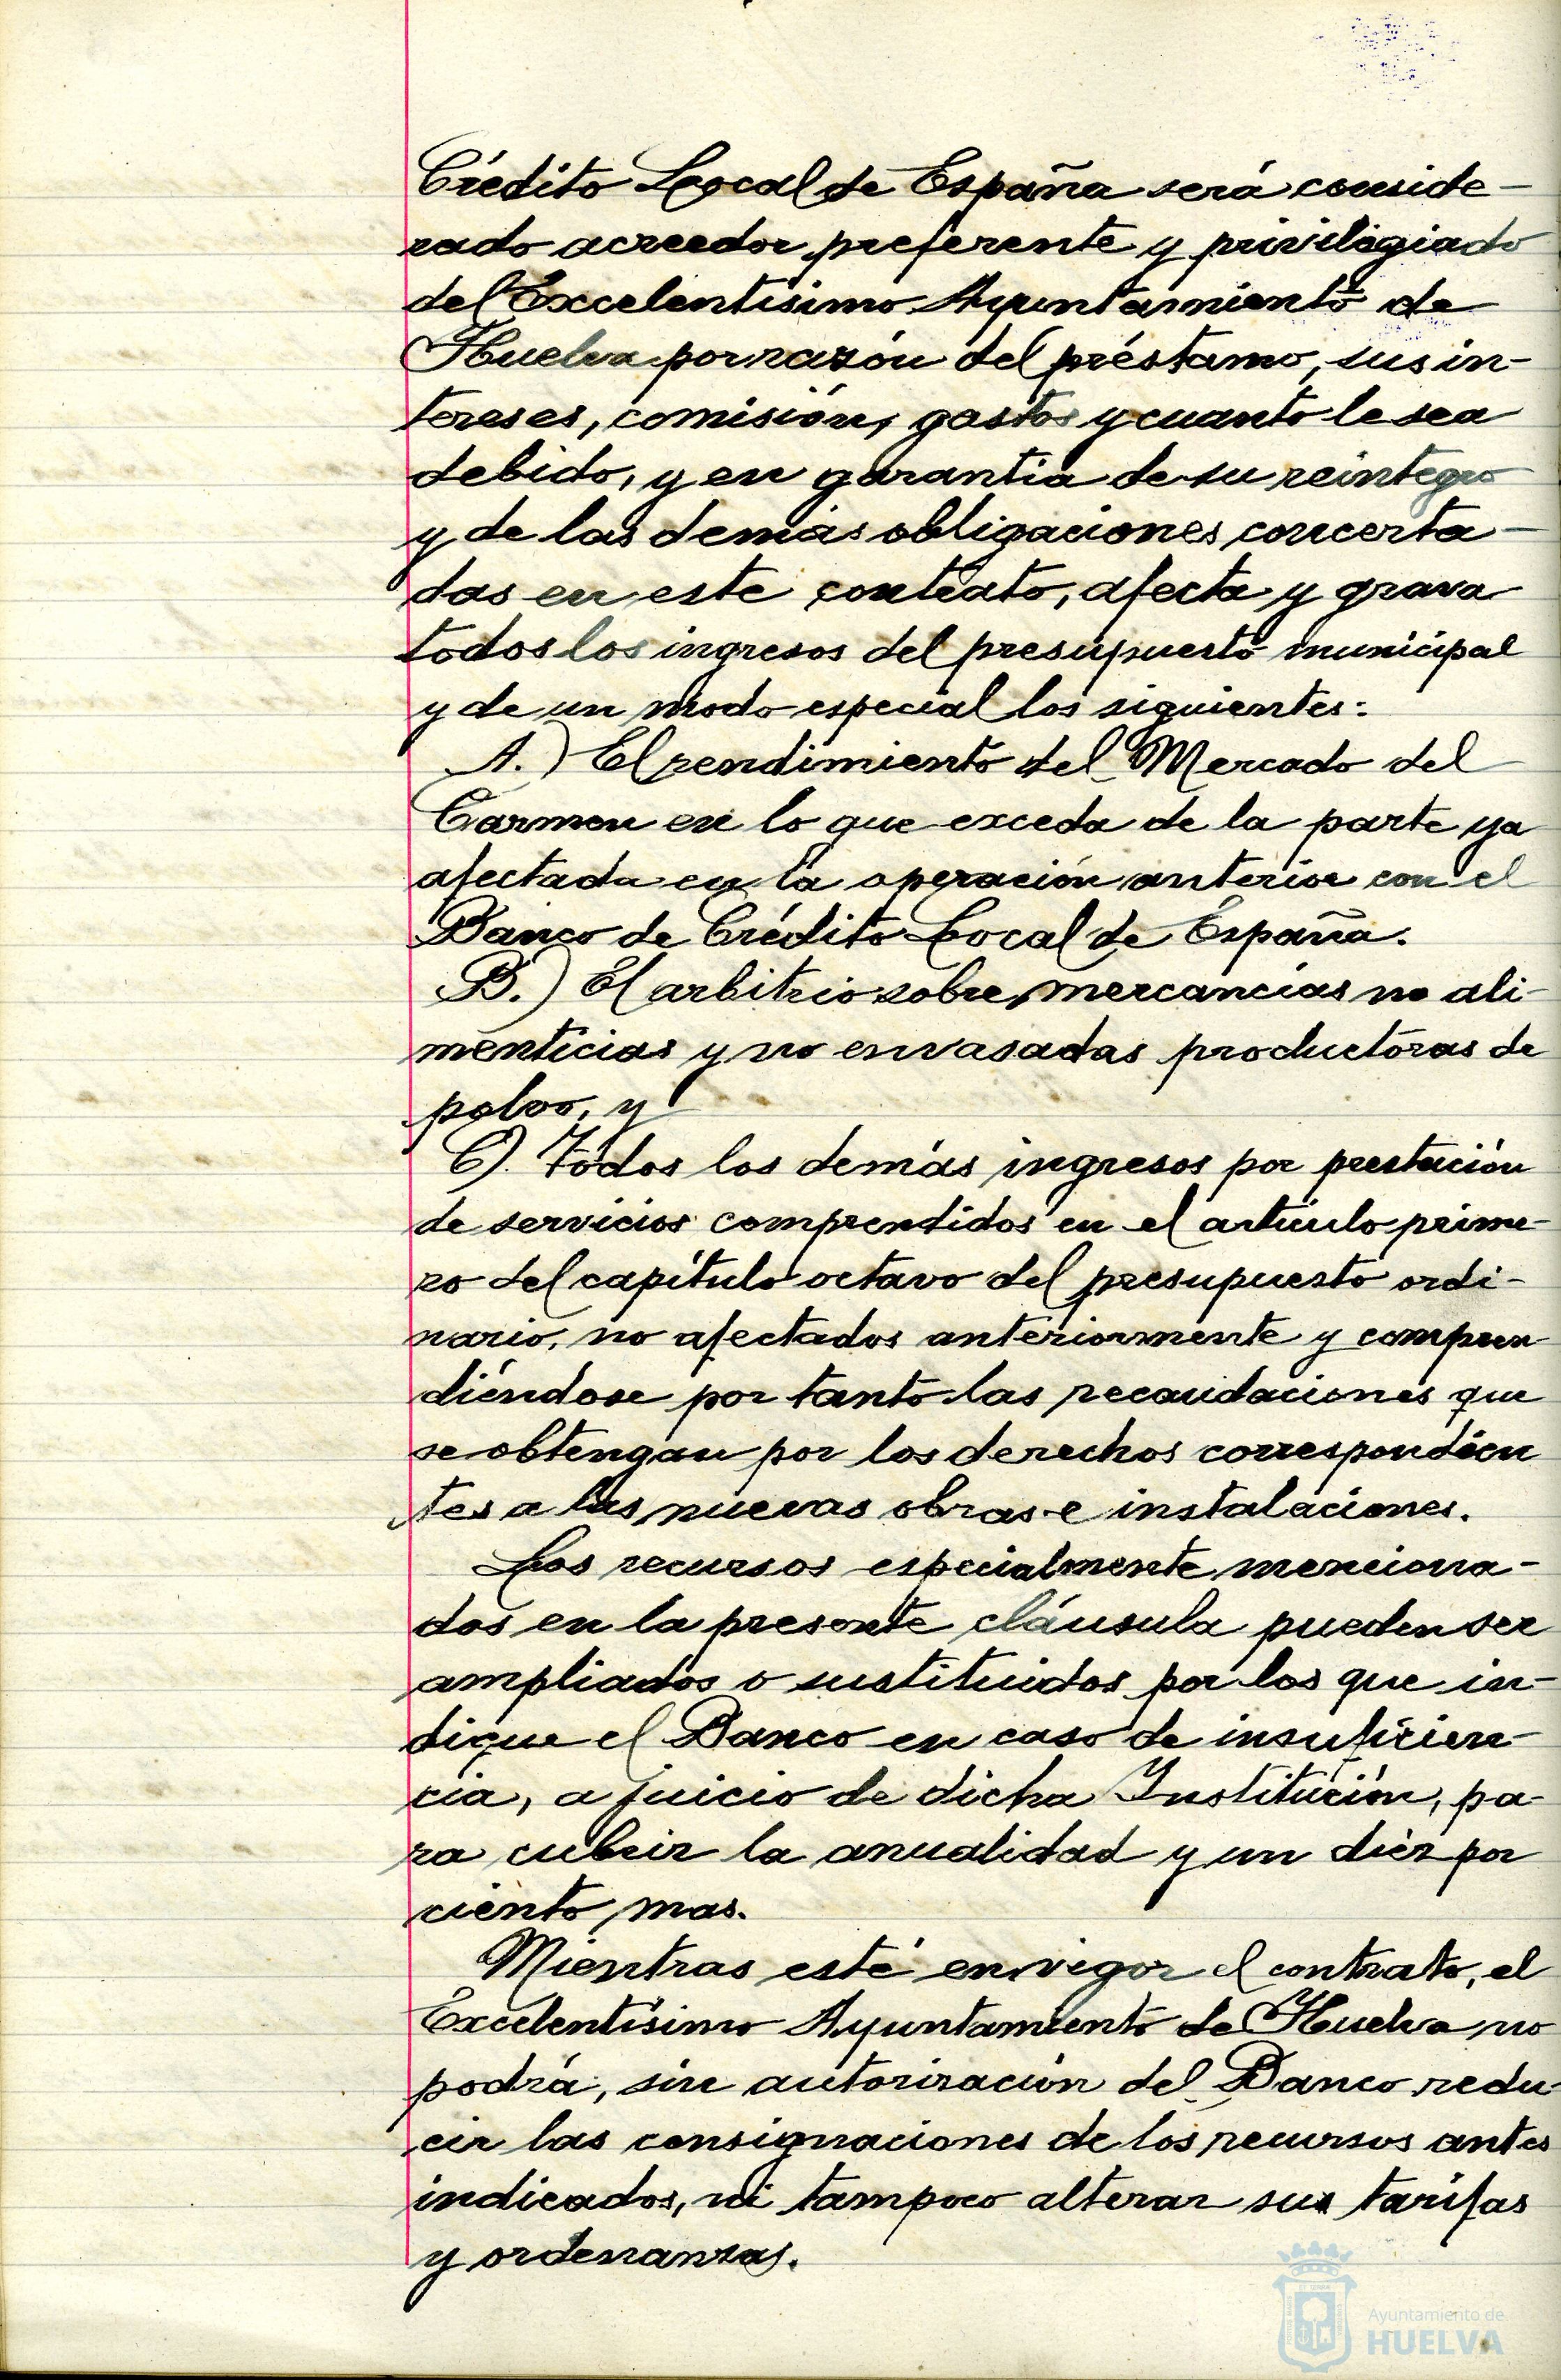 Crédito Local de España será conside-
rado acreedor preferente y privilegiado
del Excelentísimo Ayuntamiento de
Huelva por razón del préstamo, sus in-
tereses, comisión, gastos y cuanto le sea
debido, y en garantia de su reintegro
y de las demás obligaciones concerta-
das en este contrato, afecta y grava
todos los ingresos del presupuesto municipal
y de un modo especial los siguientes:
A.) El rendimiento del Mercado del
Carmen en lo que exceda de la parte ya
afectada en la operación anterior con el
Banco de Crédito Local de España.
B.) El arbitrio sobre mercancias no ali-
menticias y no envasadas productoras de
polvo, y
C). Todos los demás ingresos por prestación
de servicios comprendidos en el artículo prime-
ro del capítulo octavo del presupuesto ordi-
nario, no afectados anteriormente y compren
diéndose por tanto las recaudaciones que
se obtengan por los derechos correspondien
tes a las nuevas obras e instalaciones.
Los recursos especialmente menciona-
dos en la presente cláusula pueden ser
ampliados o sustituidos por los que in-
dique el Banco en caso de insuficien-
cia, a juicio de dicha Institución, pa-
ra cubrir la anualidad y un diez por
ciento mas.
Mientras esté en vigor el contrato, el
Excelentísimo Ayuntamiento de Huelva no
podrá, sin autorización del Banco redu-
cir las consignaciones de los recursos antes
indicados, ni tampoco alterar sus tarifas
y ordenanzas.
Ayuntamiento de
HUELVA